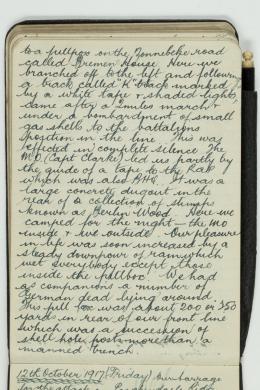 to a pillbox on the Zonnebeke road
called Bremen House. Here we
branched off to the left and following
a track called "K" track marked
by a white tape & shaded lights,
came after a 2 miles march &
under a bombardment of small
gas shells to the battalions
position in the line. This was
effected in complete silence. The
M.O. (Capt Clarke) led us partly by
the guide of a tape to the RAP
which was also BHQ. It was a
large concrete dugout in the
rear of a collection of stumps
known as Berlin Wood. Here we
camped for the night - the MO
inside & we outside. Our pleasure
in life was soon increased by a
steady downpour of rain which
wet everybody except those
inside the pillbox. We had
as companions a number of
German dead lying around.
This pill box was about 200 or 250
yards in rear of our front line
which was a succession of
shell hole posts more than a
manned trench.
12th October 1917 (Friday) Our barrage